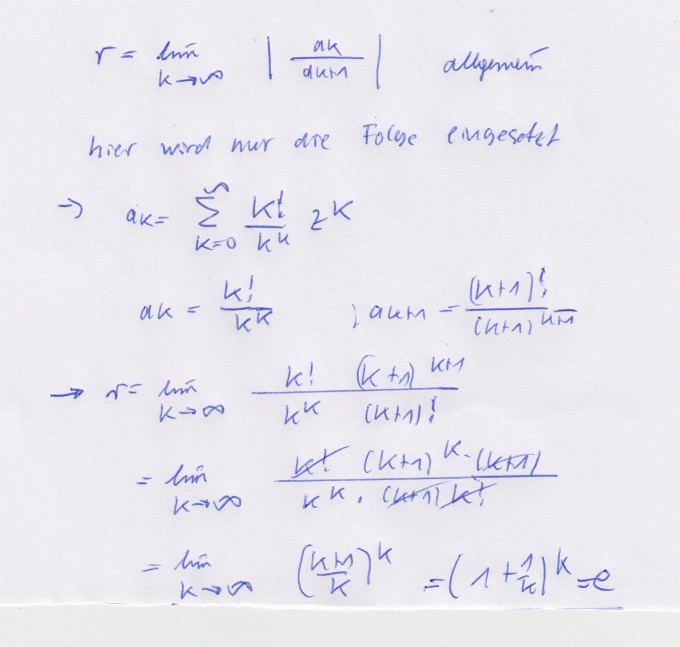 r = lim k→∞ | ak / ak+1 | allgemein
hier wird nur die Folge eingesetzt
→ ak = ∞ ∑ k=0 k! / k^k z^k
ak = k! / k^k ; ak+1 = (k+1)! / (k+1)^k+1
→ r = lim k→∞ k! (k+1)^k+1 / k^k (k+1)!
= lim k→∞ k! (k+1)^k · (k+1) / k^k · (k+1) k!
= lim k→∞ (k+1 / k)^k = (1 + 1/k)^k = e